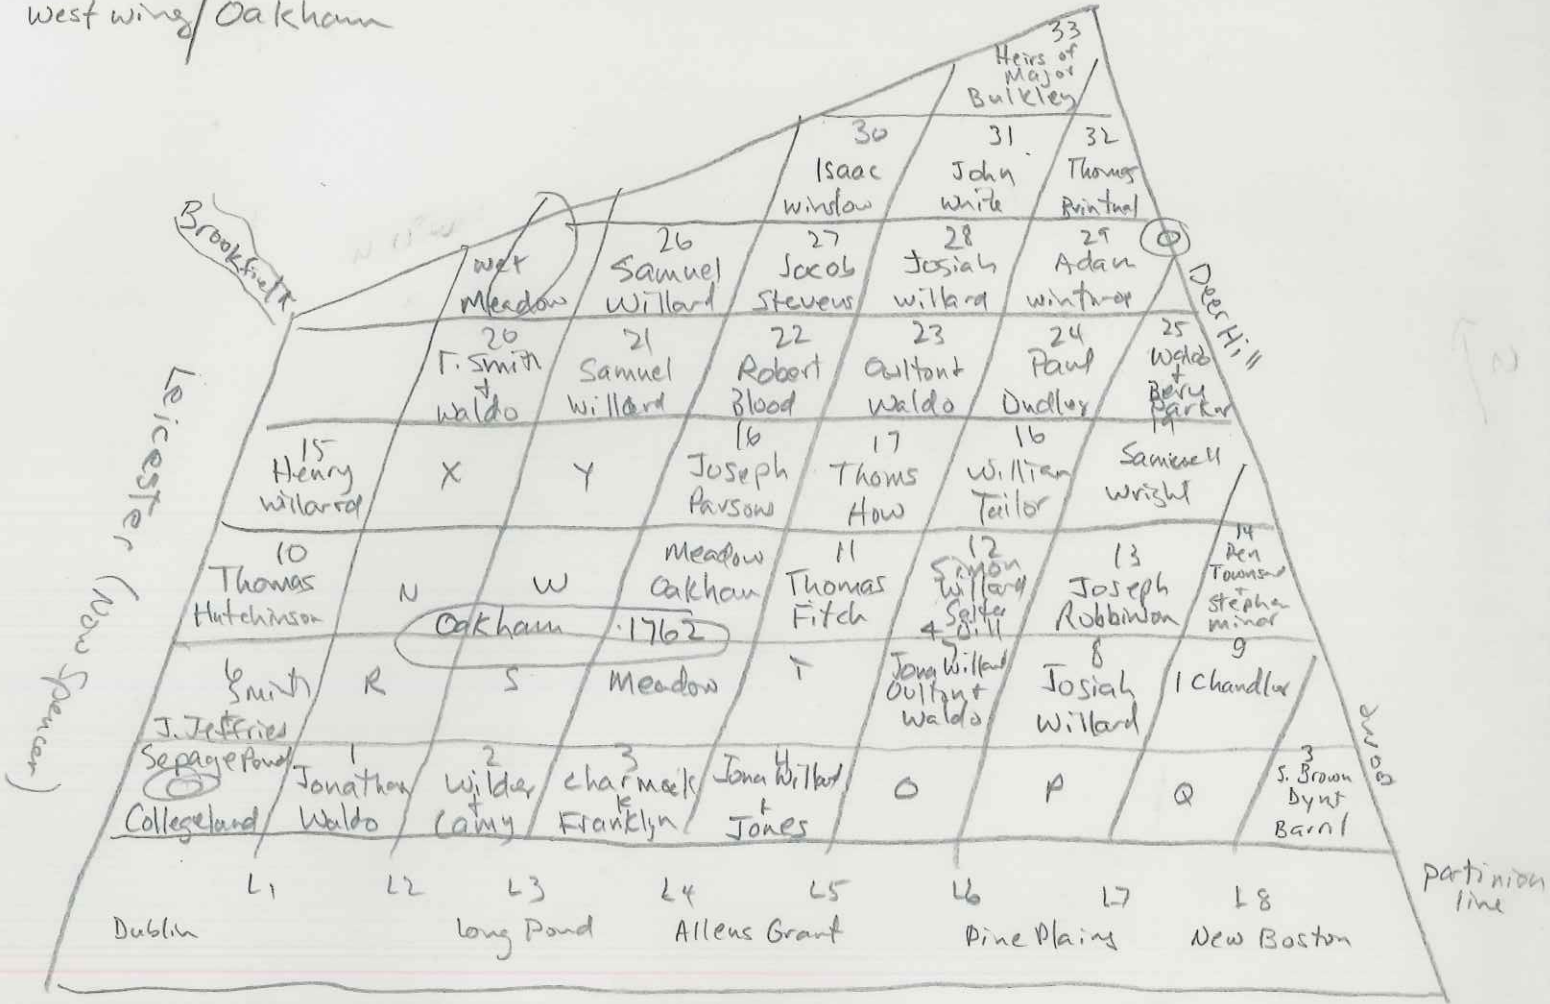 west wing/Oakham
33
Heirs of
Major
Bulkley
30
Isaac
winslow
31
John
White
32
Thomas
Brookfield
wet
Meadow
26
Samuel
Willard
27
Jacob
Stevens
28
Josiah
willard
29
Adam
winthrop
Deer Hill
20
T. Smith
+
Waldo
21
Samuel
Willard
22
Robert
Blood
23
Oulton+
Waldo
24
Paul
Dudley
25
Waldo
+
Parker
15
Henry
Willarrd
X
Y
16
Joseph
Parsons
17
Thoms
How
16
William
Tailor
19
Samiuell
Wright
Leicester (Now Spencer)
10
Thomas
Hutchinson
N
W
Meadow
Oakham
11
Thomas
Fitch
12
Simon
Willard
Salter
13
Joseph
Robbinson
14
Pen
Townsend
+
Stephen
minor
Oakham 1762
6
Smith
+
J. Jeffries
R
S
Meadow
T
7
Jona Willard
Oulton+
Waldo
8
Josiah
Willard
9
I Chandler
Sepage Pond
Collegeland
1
Jonathan
Waldo
2
Wilder
+
3
Franklyn
4
Jona Willard
+
Jones
O
P
Q
3
S. Brown
L1
L2
L3
L4
L5
L6
L7
L8
line
Dublin
Long Pond
Allens Grant
Pine Plains
New Boston